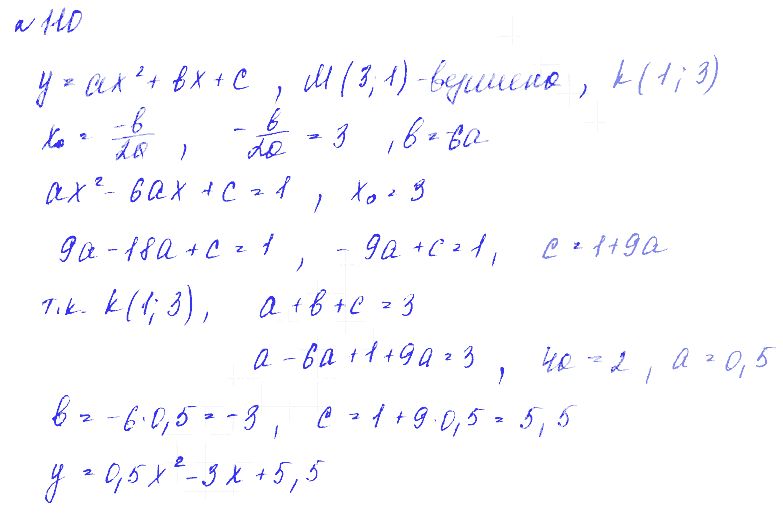 №110
y = ax² + bx + c , M(3;1) - вершина , k(1;3)
x₀ = -b/2a , -b/2a = 3 , b = -6a
ax² - 6ax + c = 1 , x₀ = 3
9a - 18a + c = 1 , -9a + c = 1, c = 1 + 9a
т.к. k(1;3), a + b + c = 3
a - 6a + 1 + 9a = 3 , 4a = 2 , a = 0,5
b = -6·0,5 = -3 , c = 1 + 9·0,5 = 5,5
y = 0,5x² - 3x + 5,5